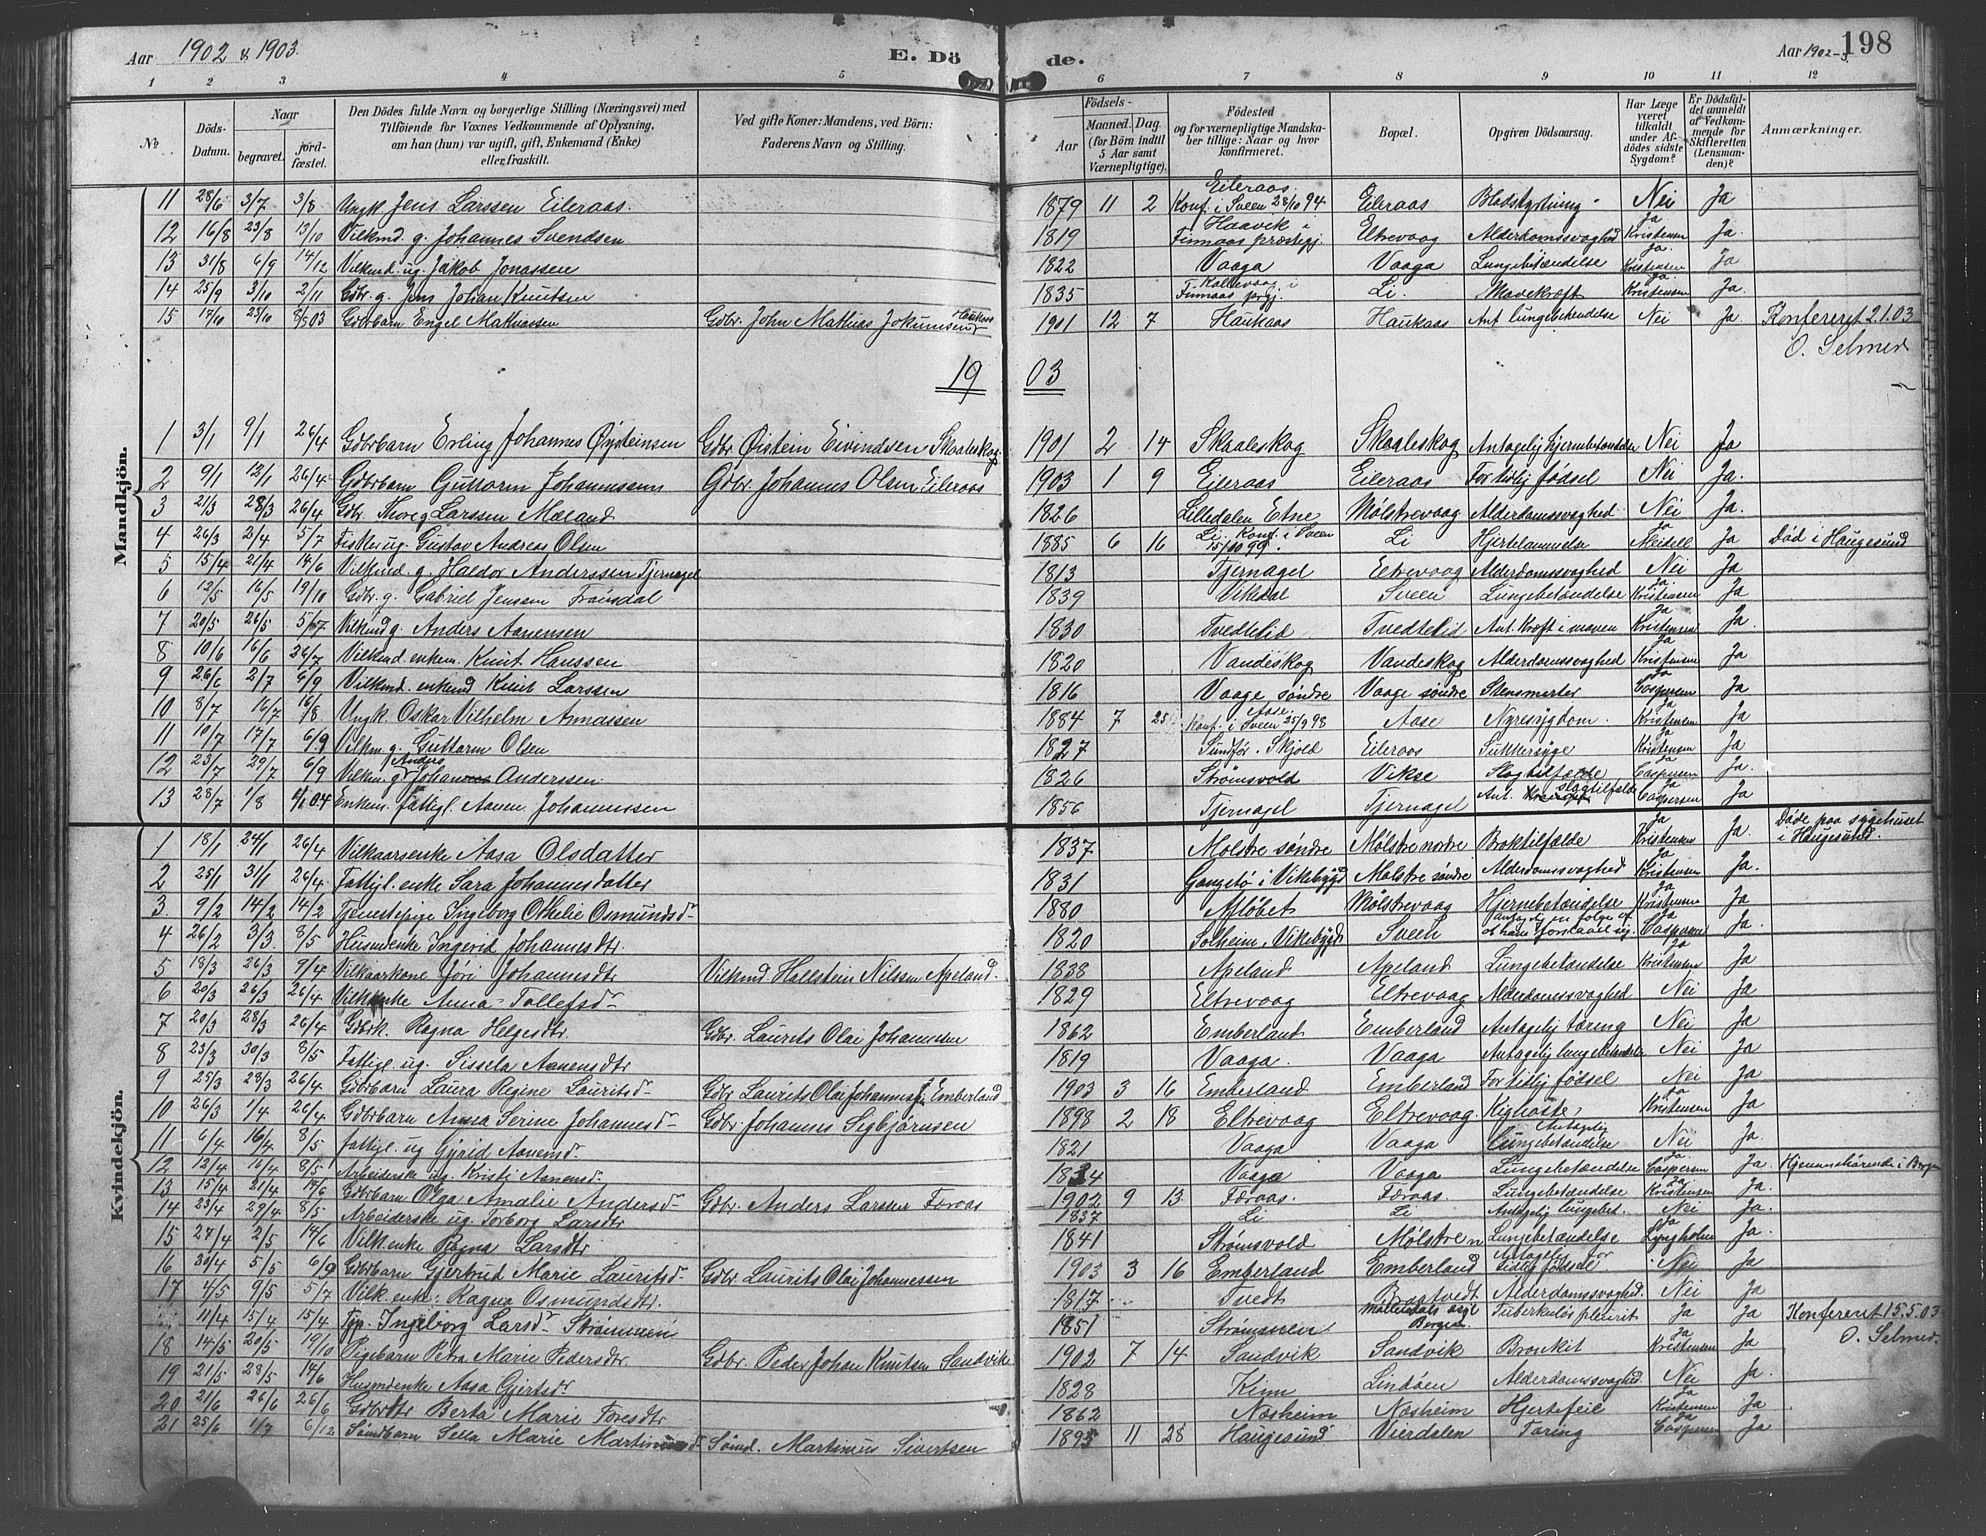 Aar 1902 & 1903. E. Dö de. Aar 1902-3. 198
1 2 3 4 5 6 7 8 9 10 11 12
№ Döds-Datum. Naar begravet. jordfæstet. Den Dödes fulde Navn og borgerlige Stilling (Næringsvei) med Tilföiende for Voxnes Vedkommende af Oplysning, om han (hun) var ugift, gift, Enkemand (Enke) eller fraskilt. Ved gifte Koner: Mandens, ved Börn: Faderens Navn og Stilling. Födsels- Aar Maaned. Dag. (for Börn indtil 5 Aar samt Værnepligtige). Födested og for værnepligtige Mandskaber tillige: Naar og hvor konfirmeret. Bopæl. Opgiven Dödsaarsag. Har Læge været tilkaldt under Afdödes sidste Sygdom? Er Dödsfuldet anmeldt af Vedkommende for Skifteretten (Lensmanden)? Anmærkninger.
Mandkjön.
11 28/6 3/7 3/8 Ungk. Jens Larssen Eileraas. 1879 11 2 Eileraas. Konf. i Sveen 28/10 94 Eileraas Blodstyrtning. Nei Ja
12 16/8 23/8 13/10 Vilkmd. g. Johannes Svendsen 1819 Haavik i Finnaas præstegj. Eltrevaag Alderdomssvaghed Ja Kristensen Ja.
13 31/8 6/9 14/12 Vilkmd. ug. Jakob Jonassen 1822 Vaaga Vaaga Lungebetændelse Ja. Kristensen Ja
14 25/9 3/10 2/11 Gdbr. g. Jens Johan Knutsen 1835 Kallevaag i Finnaas prgj. Li. Mavekræft Ja Kristensen Ja.
15 17/10 23/10 8/5 03 Gdbrbarn Engel Mathiassen Gdbr. John Mathias Jokumsen Haukaas 1901 12 7 Haukaas Haukaas Ant. lungebetændelse Nei Ja. Konfereret 2.1.03
O. Selmer
19 03
1 3/1 9/1 26/4 Gdbrbarn Erling Johannes Øysteinsen Gdbr. Øistein Eivindsen Skaaleskog 1901 2 14 Skaaleskog Skaaleskog Antagelig hjernebetændelse Nei Ja
2 9/1 12/1 26/4 Gdbrbarn Guttorm Johannesen Gdbr. Johannes Olsen Eileraas 1903 1 9 Eileraas Eileraas For tidlig fødsel Nei Ja.
3 21/3 28/3 26/4 Gdbr. Thore g. Larssen Mæland 1826 Lilledalen Etne Mølstrevaag Alderdomssvaghed. Nei Ja.
4 26/3 2/4 5/7 Fisker ug. Gustav Andreas Olsen 1885 6 16 Li. Konf. i Sveen 15/10 99. Li Hjertelammelse Ja Meidell Ja Død i Haugesund
5 15/4 21/4 14/6 Vilkmd. g. Haldor Anderssen Tjernagel 1813 Tjernagel Eltrevaag Alderdomssvaghed Nei Ja
6 12/5 16/5 19/10 Gdbr. g. Gabriel Jensen 1839 Vikedal Sveen Lungebetændelse Ja Kristensen Ja
7 20/5 26/5 5/7 Vilkmd g. Anders Aanensen 1830 Tvedtelid Tvedtelid Ant. Kræft i maven Ja Kristensen Ja.
8 10/6 16/6 26/7 Vilkmd. enkem. Knut Hanssen 1820 Vandeskog Vandeskog Alderdomssvaghed Ja Kristensen Ja
9 26/6 2/7 6/9 Vilkmd. enkemd Knut Larssen 1816 Vaage søndre Vaage søndre Stensmerter Ja Caspersen Ja
10 8/7 16/7 16/8 Ungk. Oskar Vilhelm Aanassen 1884 7 25 Aase. Konf. i Sveen 25/9 98 Aase Nyresygdom. Ja Kristensen Ja
11 10/7 17/7 6/9 Vilkm g. Guttorm Olsen 1827 Sundfør i Skjold Eileraas Sukkersyge Ja Kristensen Ja
12 23/7 29/7 6/9 Vilkm. g. Anders Johannes Anderssen. 1826 Strømsvold Vikse Slagtilfælde Ja Caspersen Ja.
13 28/7 1/8 4/1 04 Enkem. fattigl. Aanen Johannessen 1856 Tjernagel Tjernagel Ant. slagtilfælde Ja Caspersen Ja
Kvindekjön.
1 18/1 24/1 26/4 Vilkaarsenke Aasa Olsdatter 1837 Mølstre søndre Mølstre nordre Broktilfælde Ja Kristensen Ja. Døde paa sygehuset i Haugesund.
2 25/1 31/1 26/4 Fattigl. enke Sara Johannesdatter 1831 Gangstø i Vikebygd Mølstre søndre Alderdomssvaghed Ja Kristensen Ja.
3 9/2 14/2 14/2 Tjenestepige Ingeborg Othelie Osmundsd. 1880 Afløbet Mølstrevaag Hjernebetændelse Ja Kristensen Ja
4 26/2 3/3 8/5 Husmdenke Ingerid Johannesdtr. 1820 Solheim i Vikebygd Sveen antagelig en følge af at have forslaaet sig. Ja Caspersen Ja.
5 18/3 26/3 9/4 Vilkaarkone Jøri Johannesdtr Vilkmd Hallstein Nilssen Apeland. 1838 Apeland Apeland Lungebetændelse Ja Kristensen Ja
6 20/3 26/3 26/4 Vilk.enke Anna Tollefsd. 1829 Eltrevaag Eltrevaag Alderdomssvaghed Nei Ja
7 20/3 28/3 26/4 Gdbrk. Ragna Helgesdtr. Gdbr. Laurits Olai Johannessen 1862 Emberland Emberland Antagelig tæring Nei Ja
8 23/3 30/3 8/5 Fattigl. ug. Sissela Aanensdtr 1819 Vaaga. Vaaga Antagelig lungebetændelse Nei Ja
9 25/3 28/3 26/4 Gdbrbarn Laura Regine Lauritsd. Gdbr. Laurits Olai Johannessen Emberland 1903 3 16 Emberland Emberland For tidlig fødsel Nei Ja
10 26/3 1/4 26/4 Gdbrbarn Anna Serine Johannesd. Gdbr Johannes Sigbjørnsen 1898 2 18 Eltrevaag Eltrevaag. Kighoste, Kristensen Ja
11 6/4 16/4 8/5 fattigl. ug Gjørid Aanensd. 1821 Vaaga Vaaga Antagelig Lungebetændelse Nei Ja.
12 12/4 16/4 8/5 Arbeiderske ug. Kristi Aanensd. 1834 Vaaga Vaaga Lungebetændelse Ja. Caspersen Ja. Hjemmehørende i Bergen
13 15/4 21/4 14/6 Gdbrbarn Olga Amalie Andersd. Gdbr. Anders Larssen Færaas 1902 9 13 Færaas. Færaas. Lungebetændelse Ja Kristensen Ja
14 23/4 29/4 8/5 Arbeiderske ug. Torborg Larsdtr 1837 Li Li Antagelig lungebet. Nei Ja.
15 27/4 2/5 14/6 Vilk.enke Ragna Larsdtr 1841 Strømsvold Mølstre n Lungebetændelse Ja Lyngholm Ja.
16 30/4 5/5 6/9 Gdbrbarn Gjertrud Marie Lauritsd. Gdbr. Laurits Olai Johannessen 1903 3 16 Emberland Emberland Antagelig for tidlig fødsel Nei Ja
17 4/5 9/5 5/7 Vilk.enke. Ragna Osmundsdtr. 1817 Tvedt Alderdomssvaghed. Nei Ja
11/4 15/4 15/4 Ingeborg Larsd. 1851 Møllendals asyl Bergen Tuberkuløs pleurit Ja Ja Konfereret 15.5.03
18 14/5 20/5 19/10 Pigebarn Petra Marie Pedersdtr. Gdbr. Peder Johan Knutsen Sandvik 1902 7 14 Sandvik Sandvik Bronkit Ja Kristensen Ja O. Selmer.
19 21/5 28/5 14/6 Husmdenke Aasa Gjertsd. 1828 Kinn Lindøen Alderdomssvaghed Nei Ja.
20 21/6 26/6 26/6 Gdbrdtr Berta Marie Toresdtr 1862 Næsheim Næsheim Hjertefeil Ja Kristensen Ja
21 25/6 1/7 6/12 Sømdbarn Sella Marie Martinusd. Sømd. Martinus Sivertsen 1895 11 28 Haugesund Vierdalen Tæring Ja Caspersen Ja